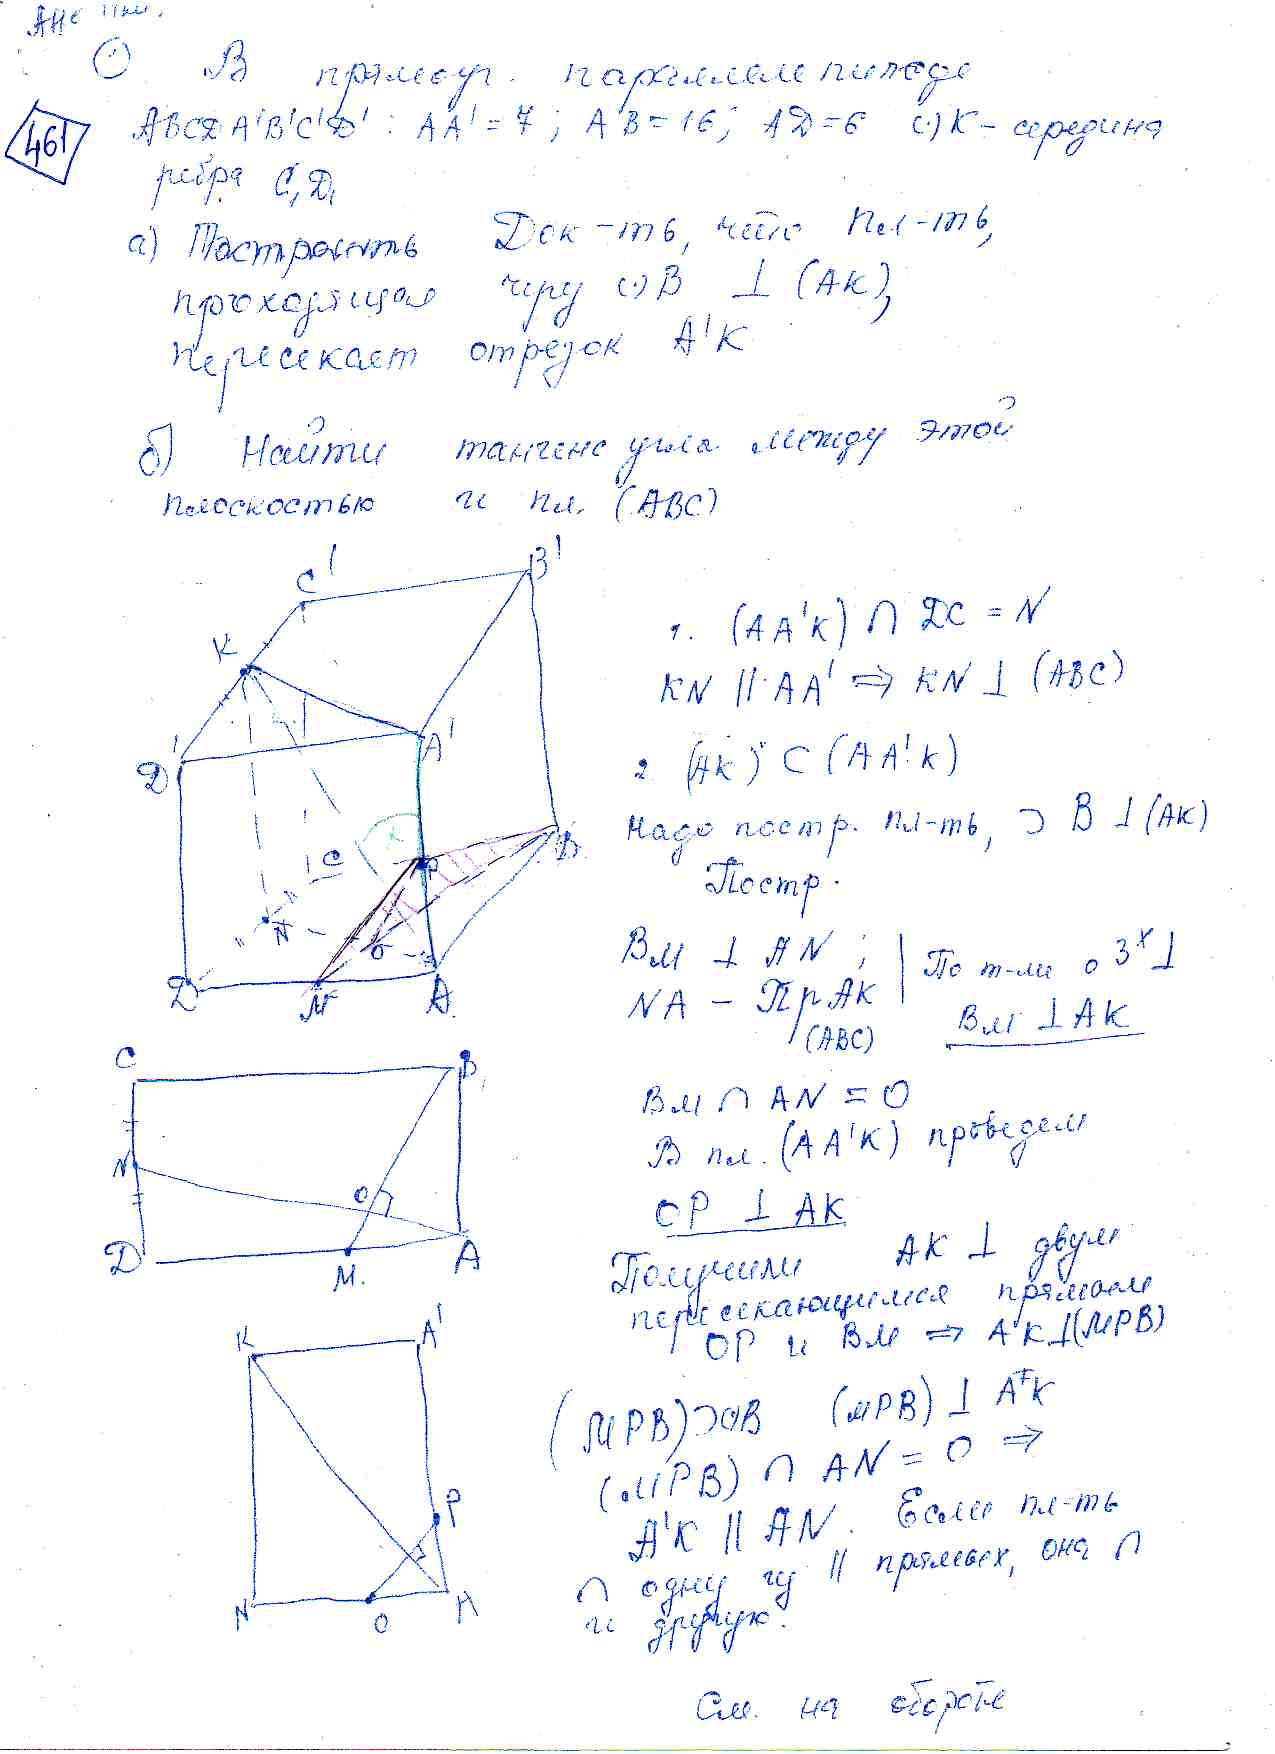 ① В прямоуг. параллелепипеде
461
ABCDA'B'C'D' : AA' = 7 ; AB = 16 ; AD = 6 (·) K - середина
ребра C₁D₁
а) Построить Док-ть, что пл-ть,
проходящая чрз (·) B ⊥ (AK),
пересекает отрезок A'K
б) Найти тангенс угла между этой
плоскостью и пл. (ABC)
C'
B'
K
D'
A'
P
C
B
N
O
D
M
A
1. (AA'K) ∩ DC = N
KN || AA' ⇒ KN ⊥ (ABC)
2. (AK) ⊂ (AA'K)
Надо постр. пл-ть, ⊃ B ⊥ (AK)
Постр.
BM ⊥ AN ;
NA - Пр AK
(ABC)
По т-ме о 3ˣ ⊥
BM ⊥ AK
C
B
N
O
D
M.
A
BM ∩ AN = O
В пл. (AA'K) проведем
OP ⊥ AK
Получили AK ⊥ двум
пересекающимся прямым
OP и BM ⇒ A'K ⊥ (MPB)
K
A'
P
N
O
A
(MPB) ⊃ OB (MPB) ⊥ A'K
(MPB) ∩ AN = O ⇒
A'K || AN. Если пл-ть
∩ одну из || прямых, она ∩
и другую.
См. на обороте